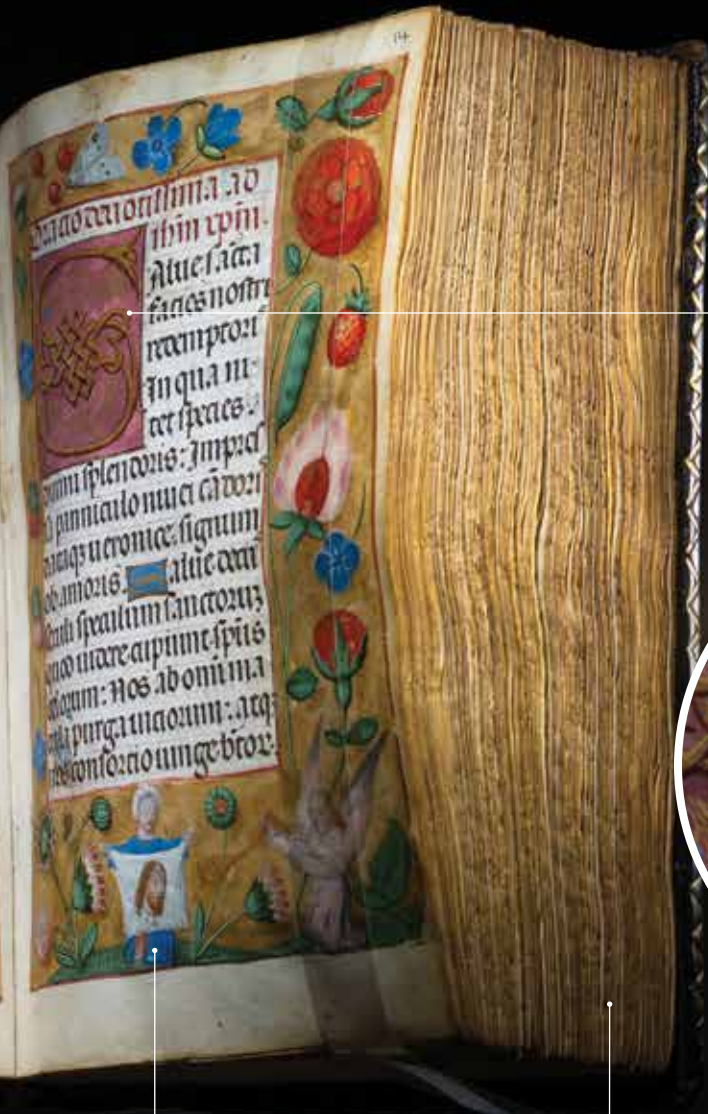 14
Oracio deuotissima ad
ihm xpm.
Salue sācta
facies nostri
redemptori
In qua ni-
tet species.
diuini splendoris: Impres
sa panniculo niuei cādori
dataqꝫ ueronice. signum
ob amoris. Salue dec
seculi speculum sanctoruꝫ
quod uidere cupiunt spūs
celorum: Nos ab omni ma
cula purga uiciorum. atqꝫ
nos consortio iunge btor.